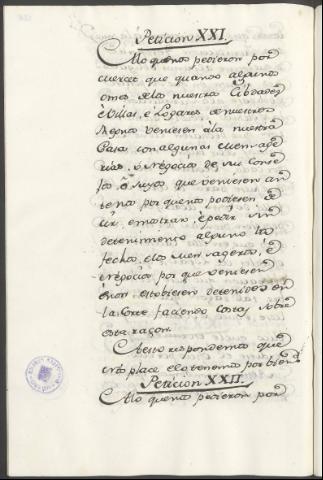 Peticion XXI.
Alo que nos pedieron por
mercet que quando algunos
omes delas nuestras Cibdades
e Villas, e Logares de nuestros
Regnos veniesen ála nuestra
Casa con algunas mensage
rias, ó negocios de su Conse
jo, ó suyos, que veniesen an
te nos por quanto podiesen de
cir, e mostrar, é pedir sin
detenimiento alguno los
fechos, e los mensageros, é
negocios por que veniesen
é non estobiesen detenidos en
la Corte faciendo costas sobre
esta razon.
A esto respondemos que
nos place e lo tenemos por bien
Peticion XXII.
Alo que nos pedieron por